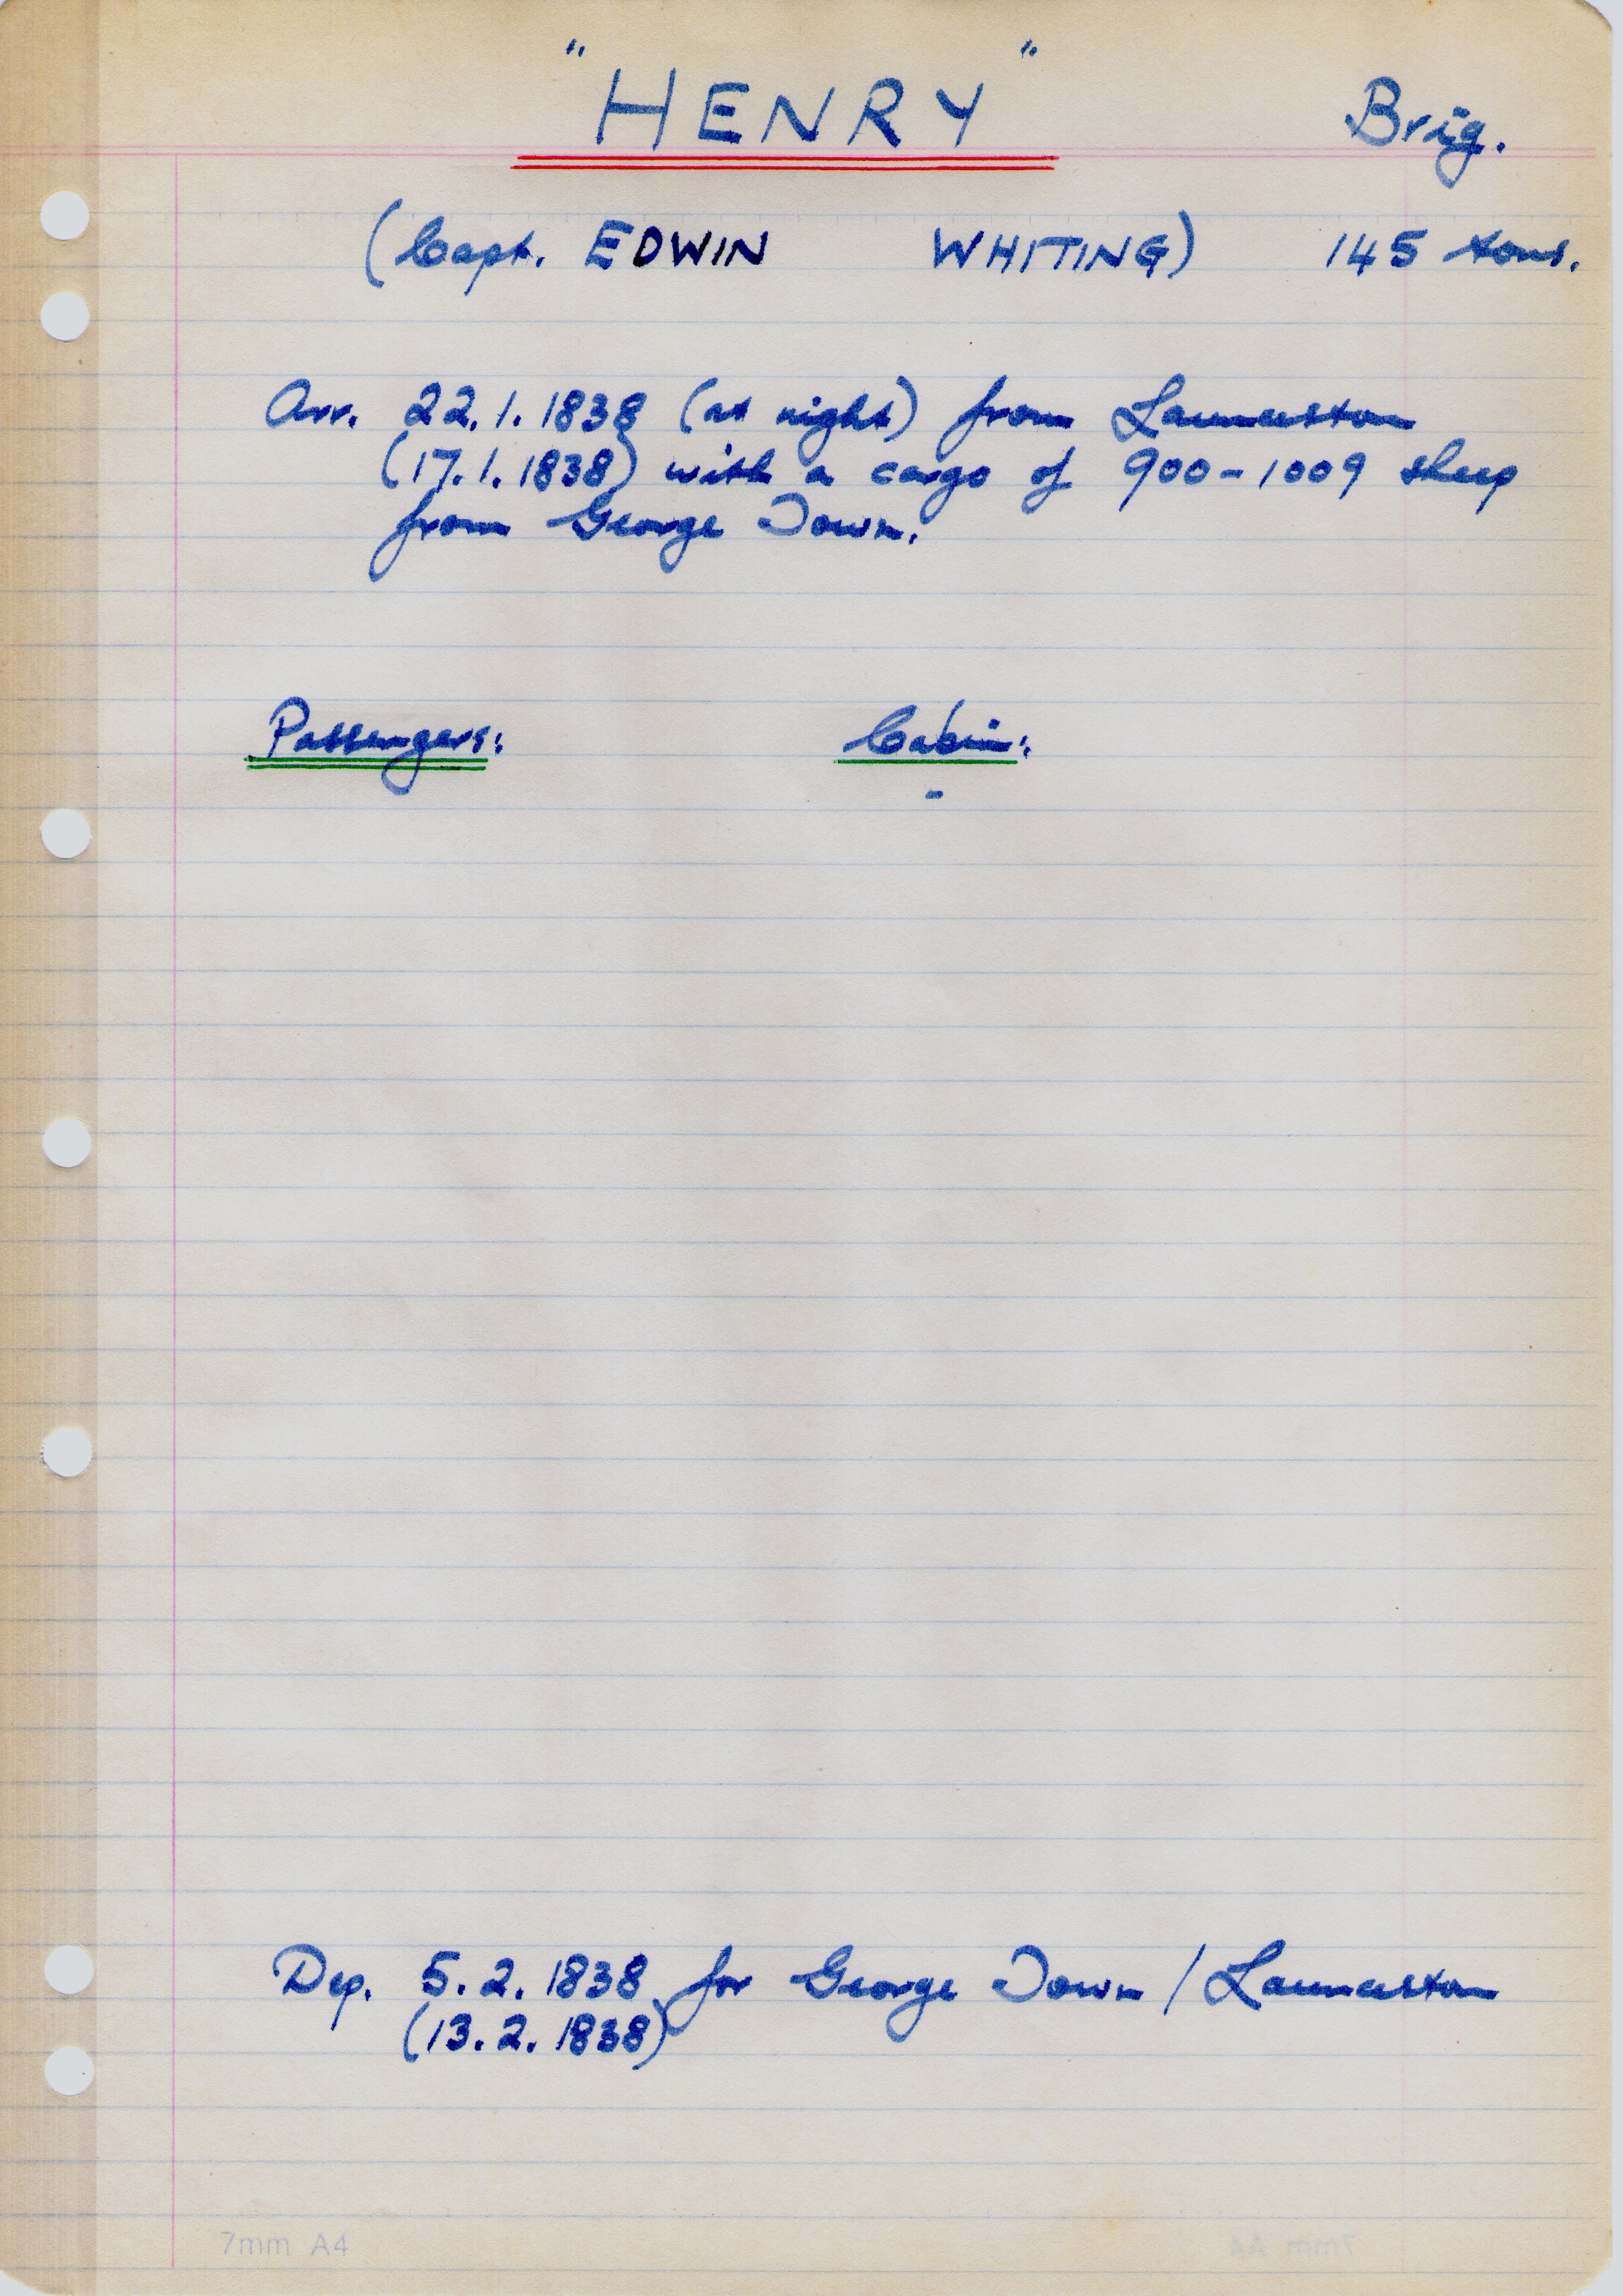 "HENRY" Brig.
(Capt. EDWIN WHITING) 145 tons.
Arr. 22.1.1838 (at night) from Launceston
(17.1.1838) with a cargo of 900-1009 sheep
from George Town.
Passengers: Cabin:
-
Dep. 5.2.1838 for George Town / Launceston
(13.2.1838)
7mm A4